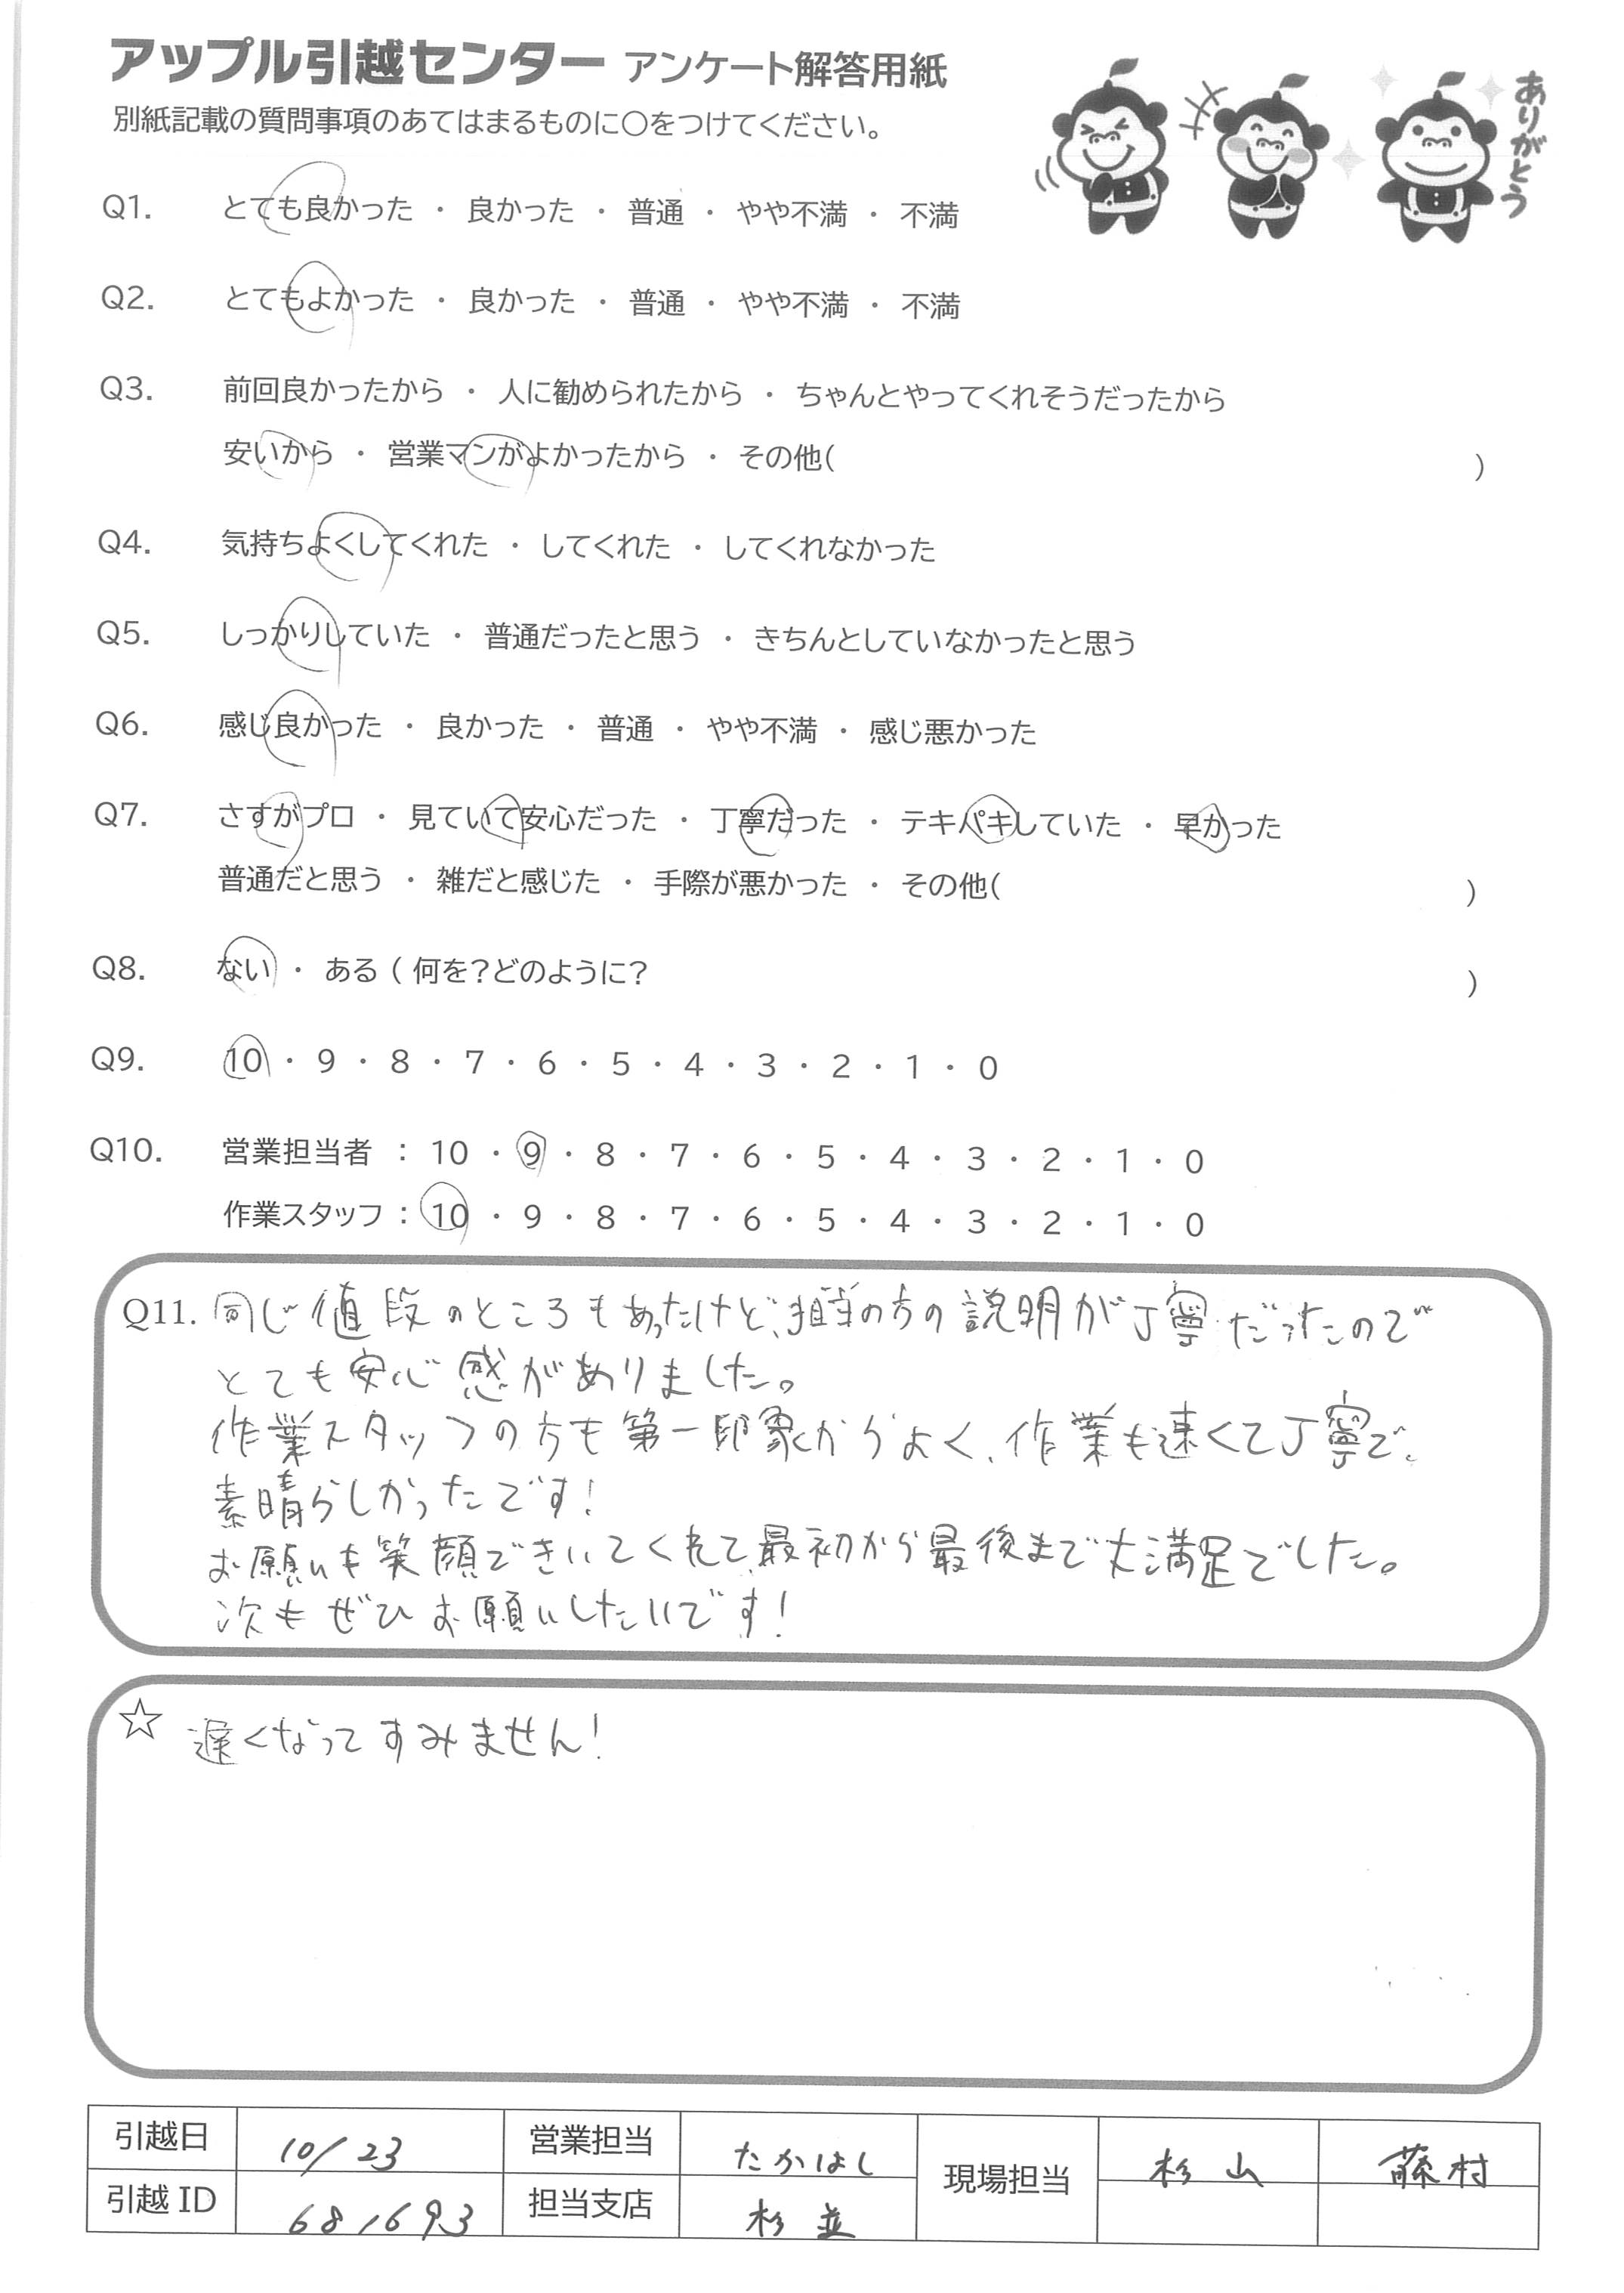 アップル引越センター アンケート解答用紙
別紙記載の質問事項のあてはまるものに○をつけてください。
ありがとう
Q1. とても良かった ・ 良かった ・ 普通 ・ やや不満 ・ 不満
Q2. とてもよかった ・ 良かった ・ 普通 ・ やや不満 ・ 不満
Q3. 前回良かったから ・ 人に勧められたから ・ ちゃんとやってくれそうだったから
安いから ・ 営業マンがよかったから ・ その他( )
Q4. 気持ちよくしてくれた ・ してくれた ・ してくれなかった
Q5. しっかりしていた ・ 普通だったと思う ・ きちんとしていなかったと思う
Q6. 感じ良かった ・ 良かった ・ 普通 ・ やや不満 ・ 感じ悪かった
Q7. さすがプロ ・ 見ていて安心だった ・ 丁寧だった ・ テキパキしていた ・ 早かった
普通だと思う ・ 雑だと感じた ・ 手際が悪かった ・ その他( )
Q8. ない ・ ある ( 何を?どのように? )
Q9. 10 ・ 9 ・ 8 ・ 7 ・ 6 ・ 5 ・ 4 ・ 3 ・ 2 ・ 1 ・ 0
Q10. 営業担当者 : 10 ・ 9 ・ 8 ・ 7 ・ 6 ・ 5 ・ 4 ・ 3 ・ 2 ・ 1 ・ 0
作業スタッフ : 10 ・ 9 ・ 8 ・ 7 ・ 6 ・ 5 ・ 4 ・ 3 ・ 2 ・ 1 ・ 0
Q11. 同じ値段のところもあったけど、担当の方の説明が丁寧だったので
とても安心感がありました。
作業スタッフの方も第一印象からよく、作業も速くて丁寧で、
素晴らしかったです!
お願いも笑顔できいてくれて、最初から最後まで大満足でした。
次もぜひお願いしたいです!
☆ 遅くなってすみません!
引越日 10/23 営業担当 たかはし 現場担当 杉山 藤村
引越ID 681693 担当支店 杉並